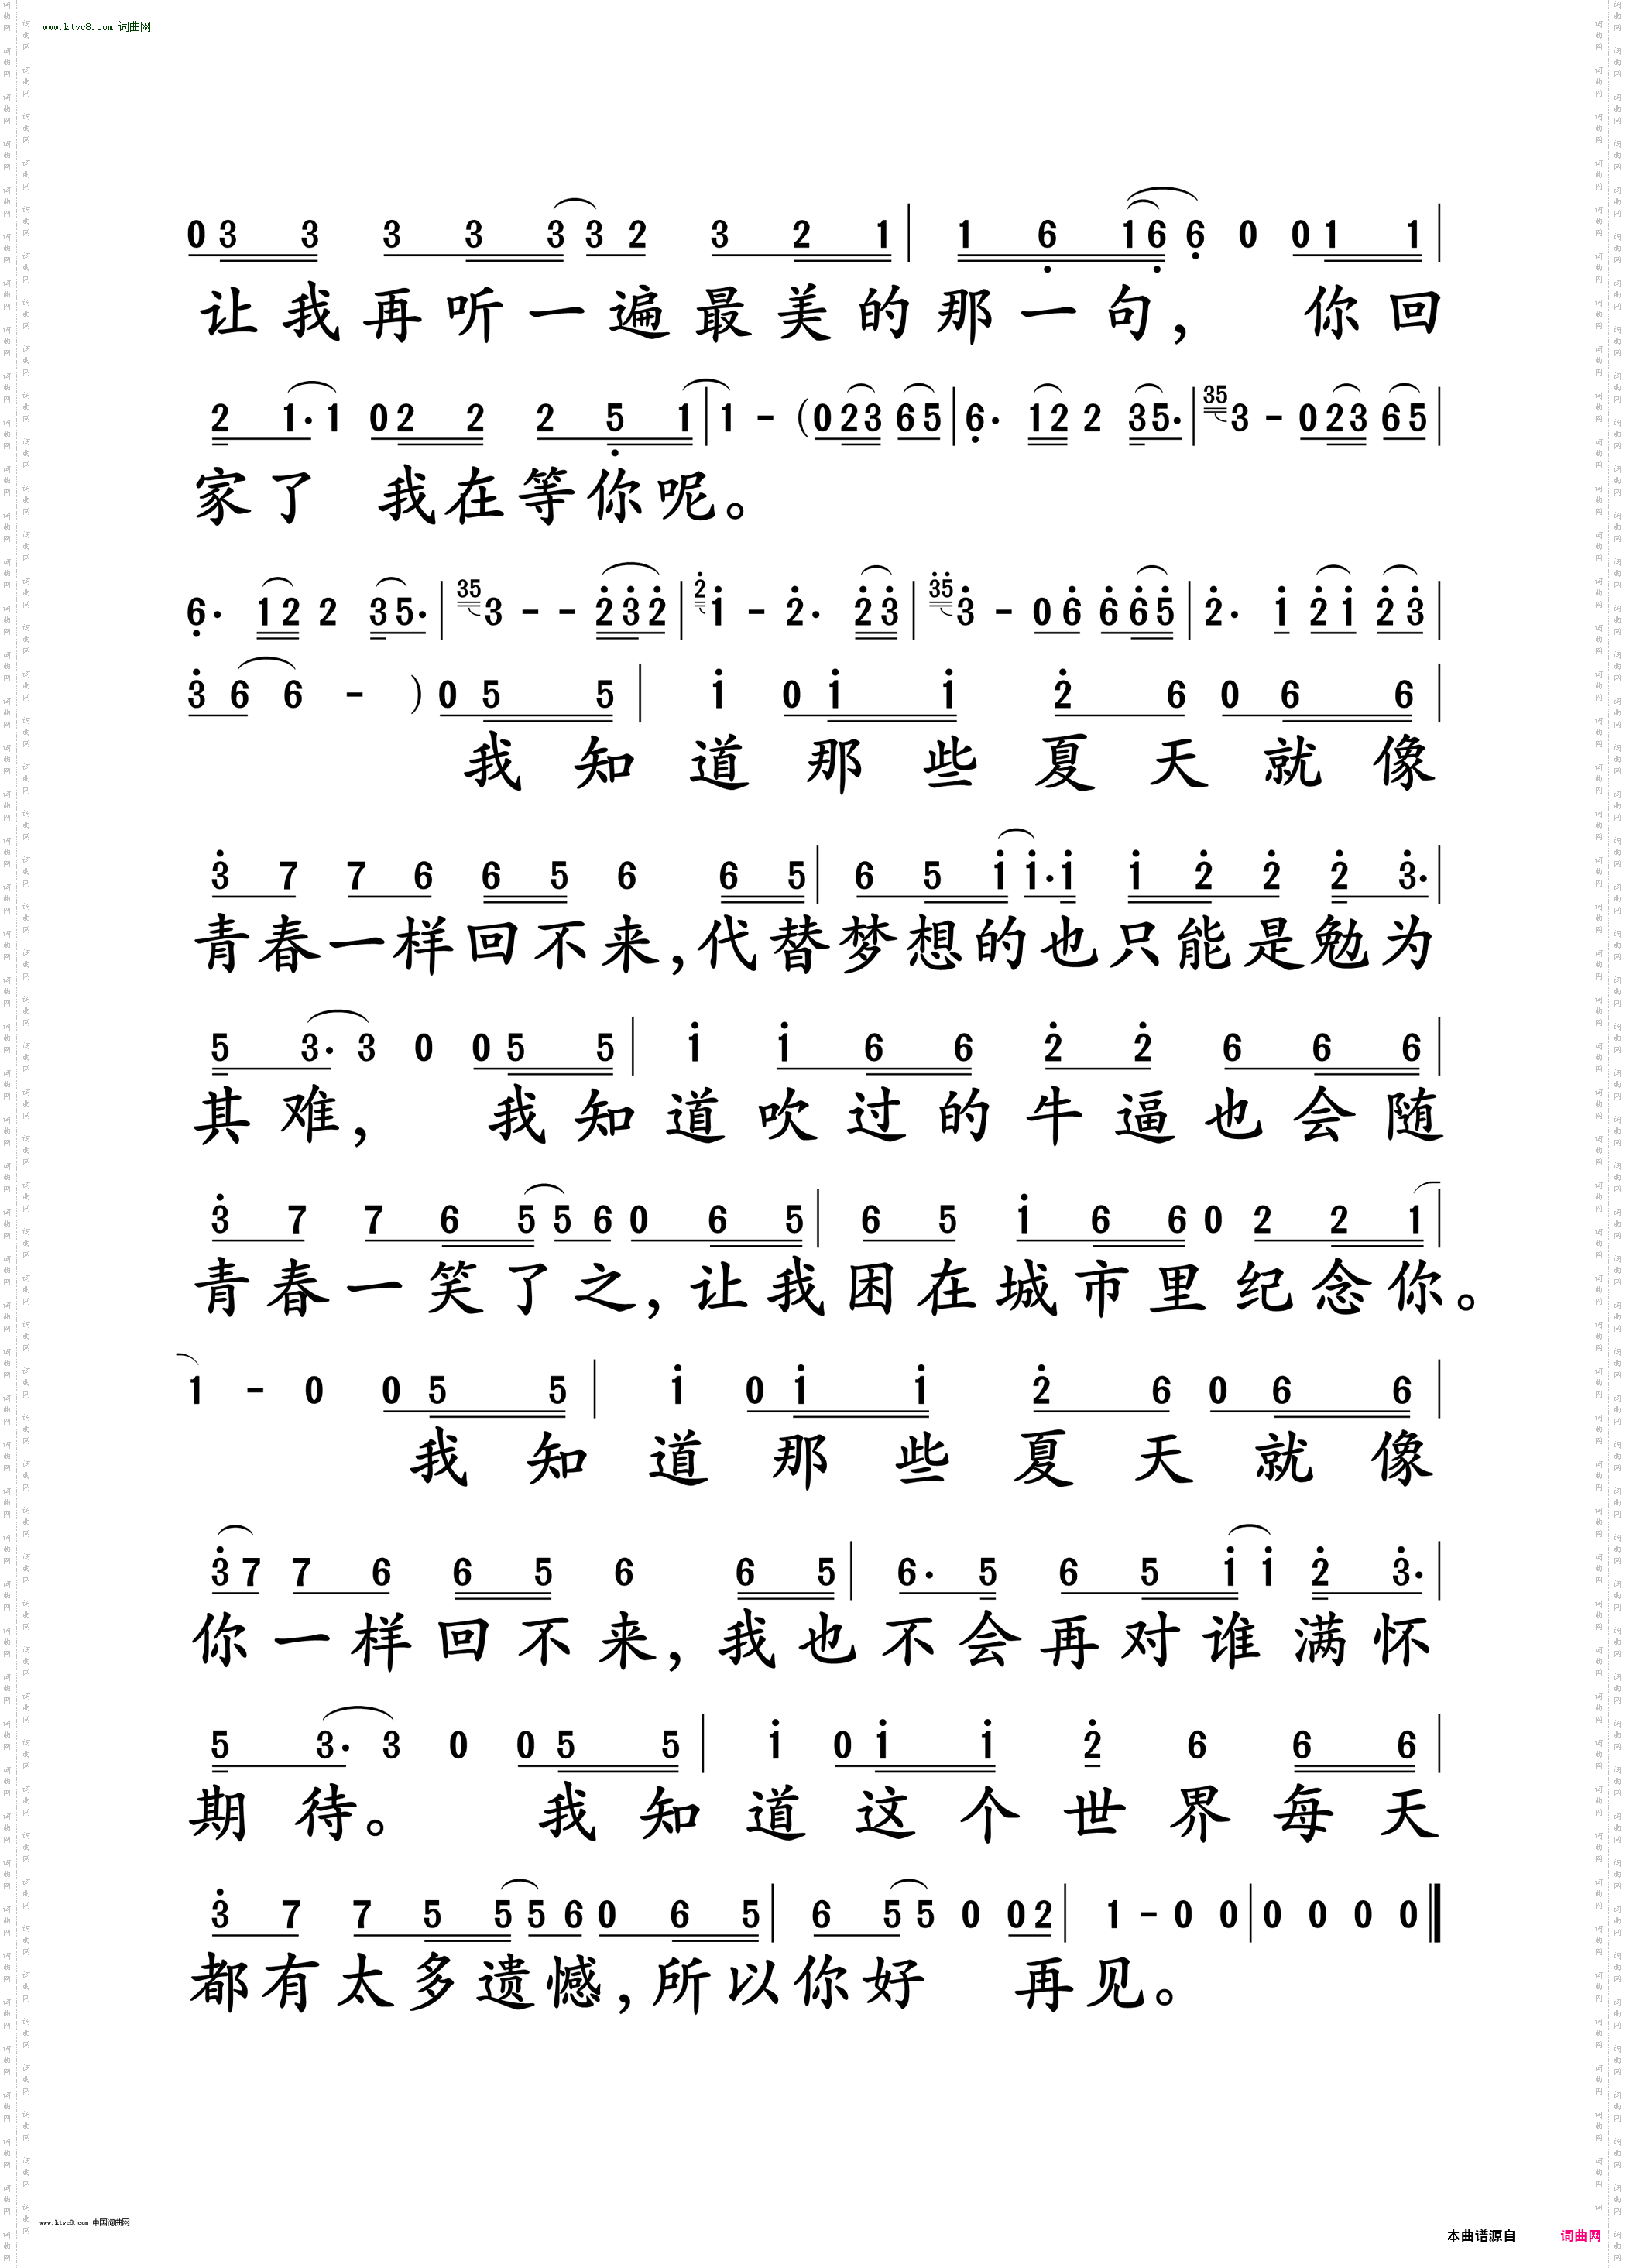 www.ktvc8.com 词曲网
0 3 3 3 3 3 3 2 3 2 1 | 1 6 1 6 6 0 0 1 1 |
让我再听一遍最美的那一句， 你回
2 1· 1 0 2 2 2 5 1 | 1 - ( 0 2 3 6 5 | 6· 1 2 2 3 5· | 35 3 - 0 2 3 6 5 |
家了 我在等你呢。
6· 1 2 2 3 5· | 35 3 - - 2 3 2 | 2 1 - 2· 2 3 | 35 3 - 0 6 6 6 5 | 2· 1 2 1 2 3 |
3 6 6 - ) 0 5 5 | 1 0 1 1 2 6 0 6 6 |
我知道那些夏天就像
3 7 7 6 6 5 6 6 5 | 6 5 1 1· 1 1 2 2 2 3· |
青春一样回不来，代替梦想的也只能是勉为
5 3· 3 0 0 5 5 | 1 1 6 6 2 2 6 6 6 |
其难， 我知道吹过的牛逼也会随
3 7 7 6 5 5 6 0 6 5 | 6 5 1 6 6 0 2 2 1 |
青春一笑了之，让我困在城市里纪念你。
1 - 0 0 5 5 | 1 0 1 1 2 6 0 6 6 |
我知道那些夏天就像
3 7 7 6 6 5 6 6 5 | 6· 5 6 5 1 1 2 3· |
你一样回不来，我也不会再对谁满怀
5 3· 3 0 0 5 5 | 1 0 1 1 2 6 6 6 |
期待。 我知道这个世界每天
3 7 7 5 5 5 6 0 6 5 | 6 5 5 0 0 2 | 1 - 0 0 | 0 0 0 0 ‖
都有太多遗憾，所以你好 再见。
www.ktvc8.com 中国词曲网
本曲谱源自 词曲网